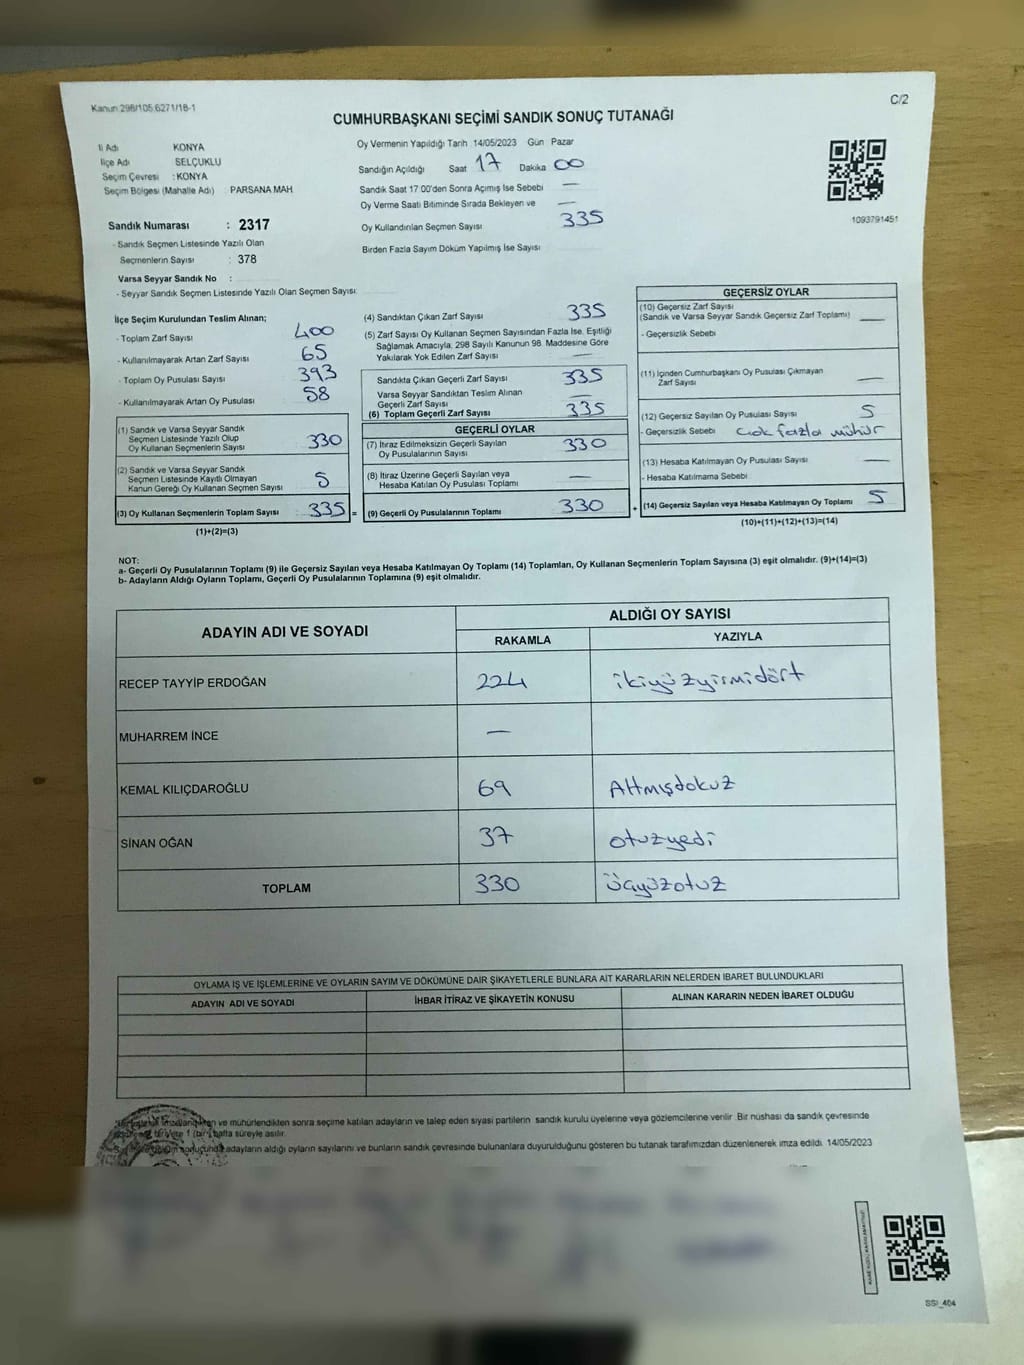 Kanun 298/105,6271/18-1
C/2
CUMHURBAŞKANI SEÇİMİ SANDIK SONUÇ TUTANAĞI
İl Adı KONYA
İlçe Adı SELÇUKLU
Seçim Çevresi : KONYA
Seçim Bölgesi (Mahalle Adı) : PARSANA MAH
Sandık Numarası : 2317
- Sandık Seçmen Listesinde Yazılı Olan
Seçmenlerin Sayısı : 378
Varsa Seyyar Sandık No :
- Seyyar Sandık Seçmen Listesinde Yazılı Olan Seçmen Sayısı:
Oy Vermenin Yapıldığı Tarih 14/05/2023 Gün Pazar
Sandığın Açıldığı Saat 17 Dakika 00
Sandık Saat 17:00'den Sonra Açımış İse Sebebi —
Oy Verme Saati Bitiminde Sırada Bekleyen ve —
Oy Kullandırılan Seçmen Sayısı 335
Birden Fazla Sayım Döküm Yapılmış İse Sayısı
1093791451
İlçe Seçim Kurulundan Teslim Alınan;
- Toplam Zarf Sayısı 400
- Kullanılmayarak Artan Zarf Sayısı 65
- Toplam Oy Pusulası Sayısı 393
- Kullanılmayarak Artan Oy Pusulası 58
(1) Sandık ve Varsa Seyyar Sandık
Seçmen Listesinde Yazılı Olup
Oy Kullanan Seçmenlerin Sayısı 330
(2) Sandık ve Varsa Seyyar Sandık
Seçmen Listesinde Kayıtlı Olmayan
Kanun Gereği Oy Kullanan Seçmen Sayısı 5
(3) Oy Kullanan Seçmenlerin Toplam Sayısı 335 =
(1)+(2)=(3)
(4) Sandıktan Çıkan Zarf Sayısı 335
(5) Zarf Sayısı Oy Kullanan Seçmen Sayısından Fazla İse, Eşitliği
Sağlamak Amacıyla, 298 Sayılı Kanunun 98. Maddesine Göre
Yakılarak Yok Edilen Zarf Sayısı —
Sandıkta Çıkan Geçerli Zarf Sayısı 335
Varsa Seyyar Sandıktan Teslim Alınan
Geçerli Zarf Sayısı —
(6) Toplam Geçerli Zarf Sayısı 335
GEÇERLİ OYLAR
(7) İtiraz Edilmeksizin Geçerli Sayılan
Oy Pusulalarının Sayısı 330
(8) İtiraz Üzerine Geçerli Sayılan veya
Hesaba Katılan Oy Pusulası Toplamı —
(9) Geçerli Oy Pusulalarının Toplamı 330 +
GEÇERSİZ OYLAR
(10) Geçersiz Zarf Sayısı
(Sandık ve Varsa Seyyar Sandık Geçersiz Zarf Toplamı) —
- Geçersizlik Sebebi
(11) İçinden Cumhurbaşkanı Oy Pusulası Çıkmayan
Zarf Sayısı —
(12) Geçersiz Sayılan Oy Pusulası Sayısı 5
- Geçersizlik Sebebi Çok fazla mühür
(13) Hesaba Katılmayan Oy Pusulası Sayısı —
- Hesaba Katılmama Sebebi
(14) Geçersiz Sayılan veya Hesaba Katılmayan Oy Toplamı 5
(10)+(11)+(12)+(13)=(14)
NOT:
a- Geçerli Oy Pusulalarının Toplamı (9) ile Geçersiz Sayılan veya Hesaba Katılmayan Oy Toplamı (14) Toplamları, Oy Kullanan Seçmenlerin Toplam Sayısına (3) eşit olmalıdır. (9)+(14)=(3)
b- Adayların Aldığı Oyların Toplamı, Geçerli Oy Pusulalarının Toplamına (9) eşit olmalıdır.
ADAYIN ADI VE SOYADI
ALDIĞI OY SAYISI
RAKAMLA YAZIYLA
RECEP TAYYİP ERDOĞAN 224 ikiyüzyirmidört
MUHARREM İNCE —
KEMAL KILIÇDAROĞLU 69 Altmışdokuz
SİNAN OĞAN 37 otuzyedi
TOPLAM 330 üçyüzotuz
OYLAMA İŞ VE İŞLEMLERİNE VE OYLARIN SAYIM VE DÖKÜMÜNE DAİR ŞİKAYETLERLE BUNLARA AİT KARARLARIN NELERDEN İBARET BULUNDUKLARI
ADAYIN ADI VE SOYADI İHBAR İTİRAZ VE ŞİKAYETİN KONUSU ALINAN KARARIN NEDEN İBARET OLDUĞU
ve mühürlendikten sonra seçime katılan adayların ve talep eden siyasi partilerin sandık kurulu üyelerine veya gözlemcilerine verilir. Bir nüshası da sandık çevresinde
1 (bir) hafta süreyle asılır.
adayların aldığı oyların sayılarını ve bunların sandık çevresinde bulunanlara duyurulduğunu gösteren bu tutanak tarafımızdan düzenlenerek imza edildi. 14/05/2023
SSI_404